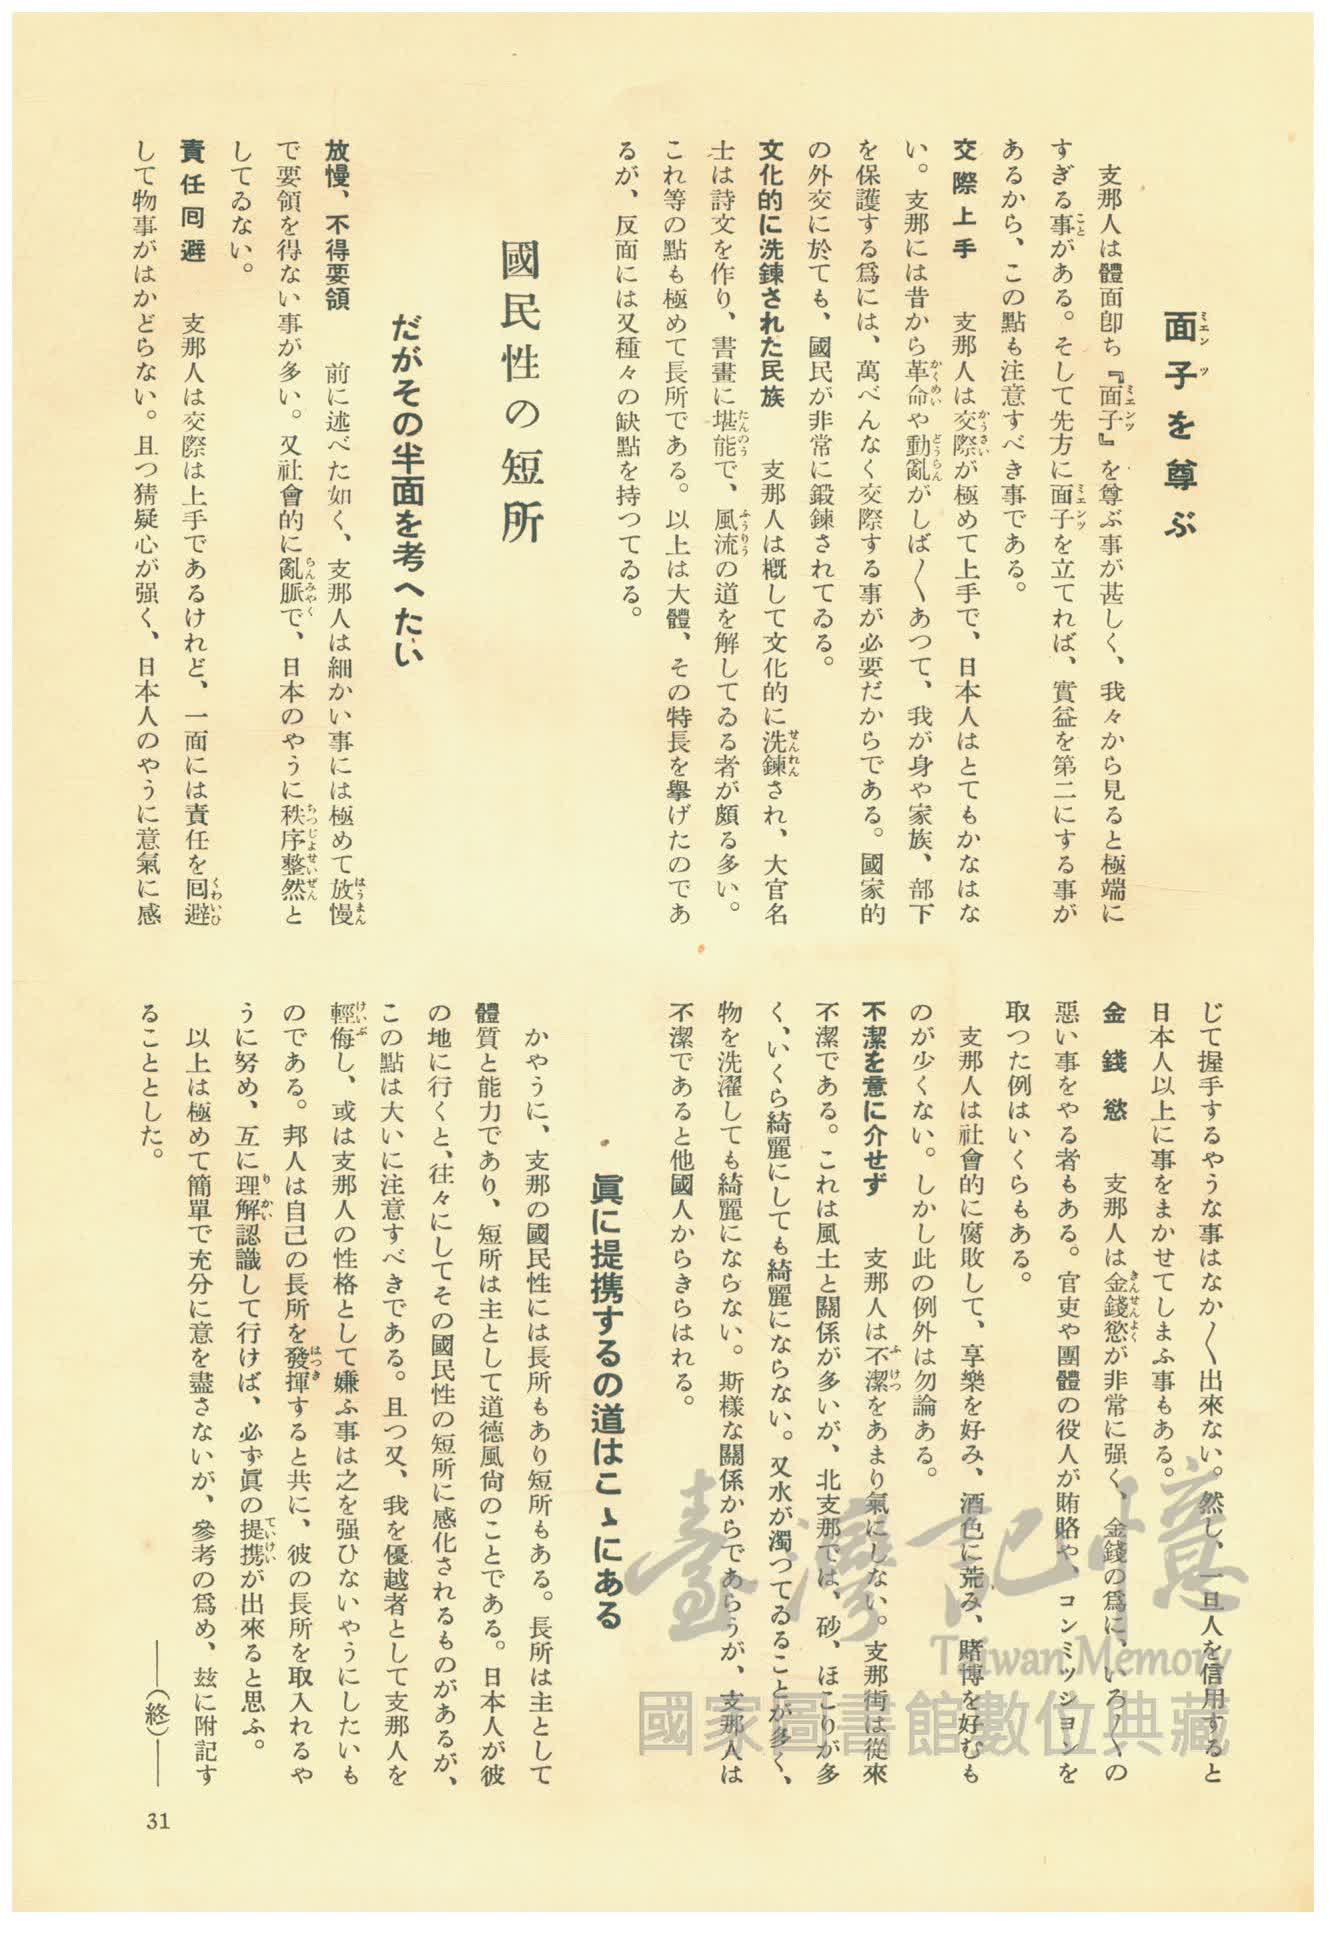 面子を尊ぶ
支那人は體面卽ち『面子』を尊ぶ事が甚しく、我々から見ると極端に
すぎる事がある。そして先方に面子を立てれば、實益を第二にする事が
あるから、この點も注意すべき事である。
交際上手　支那人は交際が極めて上手で、日本人はとてもかなはな
い。支那には昔から革命や動亂がしば〳〵あつて、我が身や家族、部下
を保護する爲には、萬べんなく交際する事が必要だからである。國家的
の外交に於ても、國民が非常に鍛鍊されてゐる。
文化的に洗鍊された民族　支那人は槪して文化的に洗鍊され、大官名
士は詩文を作り、書畫に堪能で、風流の道を解してゐる者が頗る多い。
これ等の點も極めて長所である。以上は大體、その特長を擧げたのであ
るが、反面には又種々の缺點を持つてゐる。
國民性の短所
だがその半面を考へたい
放慢、不得要領　前に述べた如く、支那人は細かい事には極めて放慢
で要領を得ない事が多い。又社會的に亂脈で、日本のやうに秩序整然と
してゐない。
責任囘避　支那人は交際は上手であるけれど、一面には責任を囘避
して物事がはかどらない。且つ猜疑心が强く、日本人のやうに意氣に感
じて握手するやうな事はなか〳〵出來ない。然し、一旦人を信用すると
日本人以上に事をまかせてしまふ事もある。
金錢慾　支那人は金錢慾が非常に强く、金錢の爲に、いろ〳〵の
惡い事をやる者もある。官吏や團體の役人が賄賂や、コンミッションを
取つた例はいくらもある。
支那人は社會的に腐敗して、享樂を好み、酒色に荒み、賭博を好むも
のが少くない。しかし此の例外は勿論ある。
不潔を意に介せず　支那人は不潔をあまり氣にしない。支那街は從來
不潔である。これは風土と關係が多いが、北支那では、砂、ほこりが多
く、いくら綺麗にしても綺麗にならない。又水が濁つてゐることが多く、
物を洗濯しても綺麗にならない。斯樣な關係からであらうが、支那人は
不潔であると他國人からきらはれる。
眞に提携するの道はこゝにある
かやうに、支那の國民性には長所もあり短所もある。長所は主として
體質と能力であり、短所は主として道德風尙のことである。日本人が彼
の地に行くと、往々にしてその國民性の短所に感化されるものがあるが、
この點は大いに注意すべきである。且つ又、我を優越者として支那人を
輕侮し、或は支那人の性格として嫌ふ事は之を强ひないやうにしたいも
のである。邦人は自己の長所を發揮すると共に、彼の長所を取入れるや
うに努め、互に理解認識して行けば、必ず眞の提携が出來ると思ふ。
以上は極めて簡單で充分に意を盡さないが、參考の爲め、玆に附記す
ることとした。
——（終）——
31
臺灣記憶
Taiwan Memory
國家圖書館數位典藏